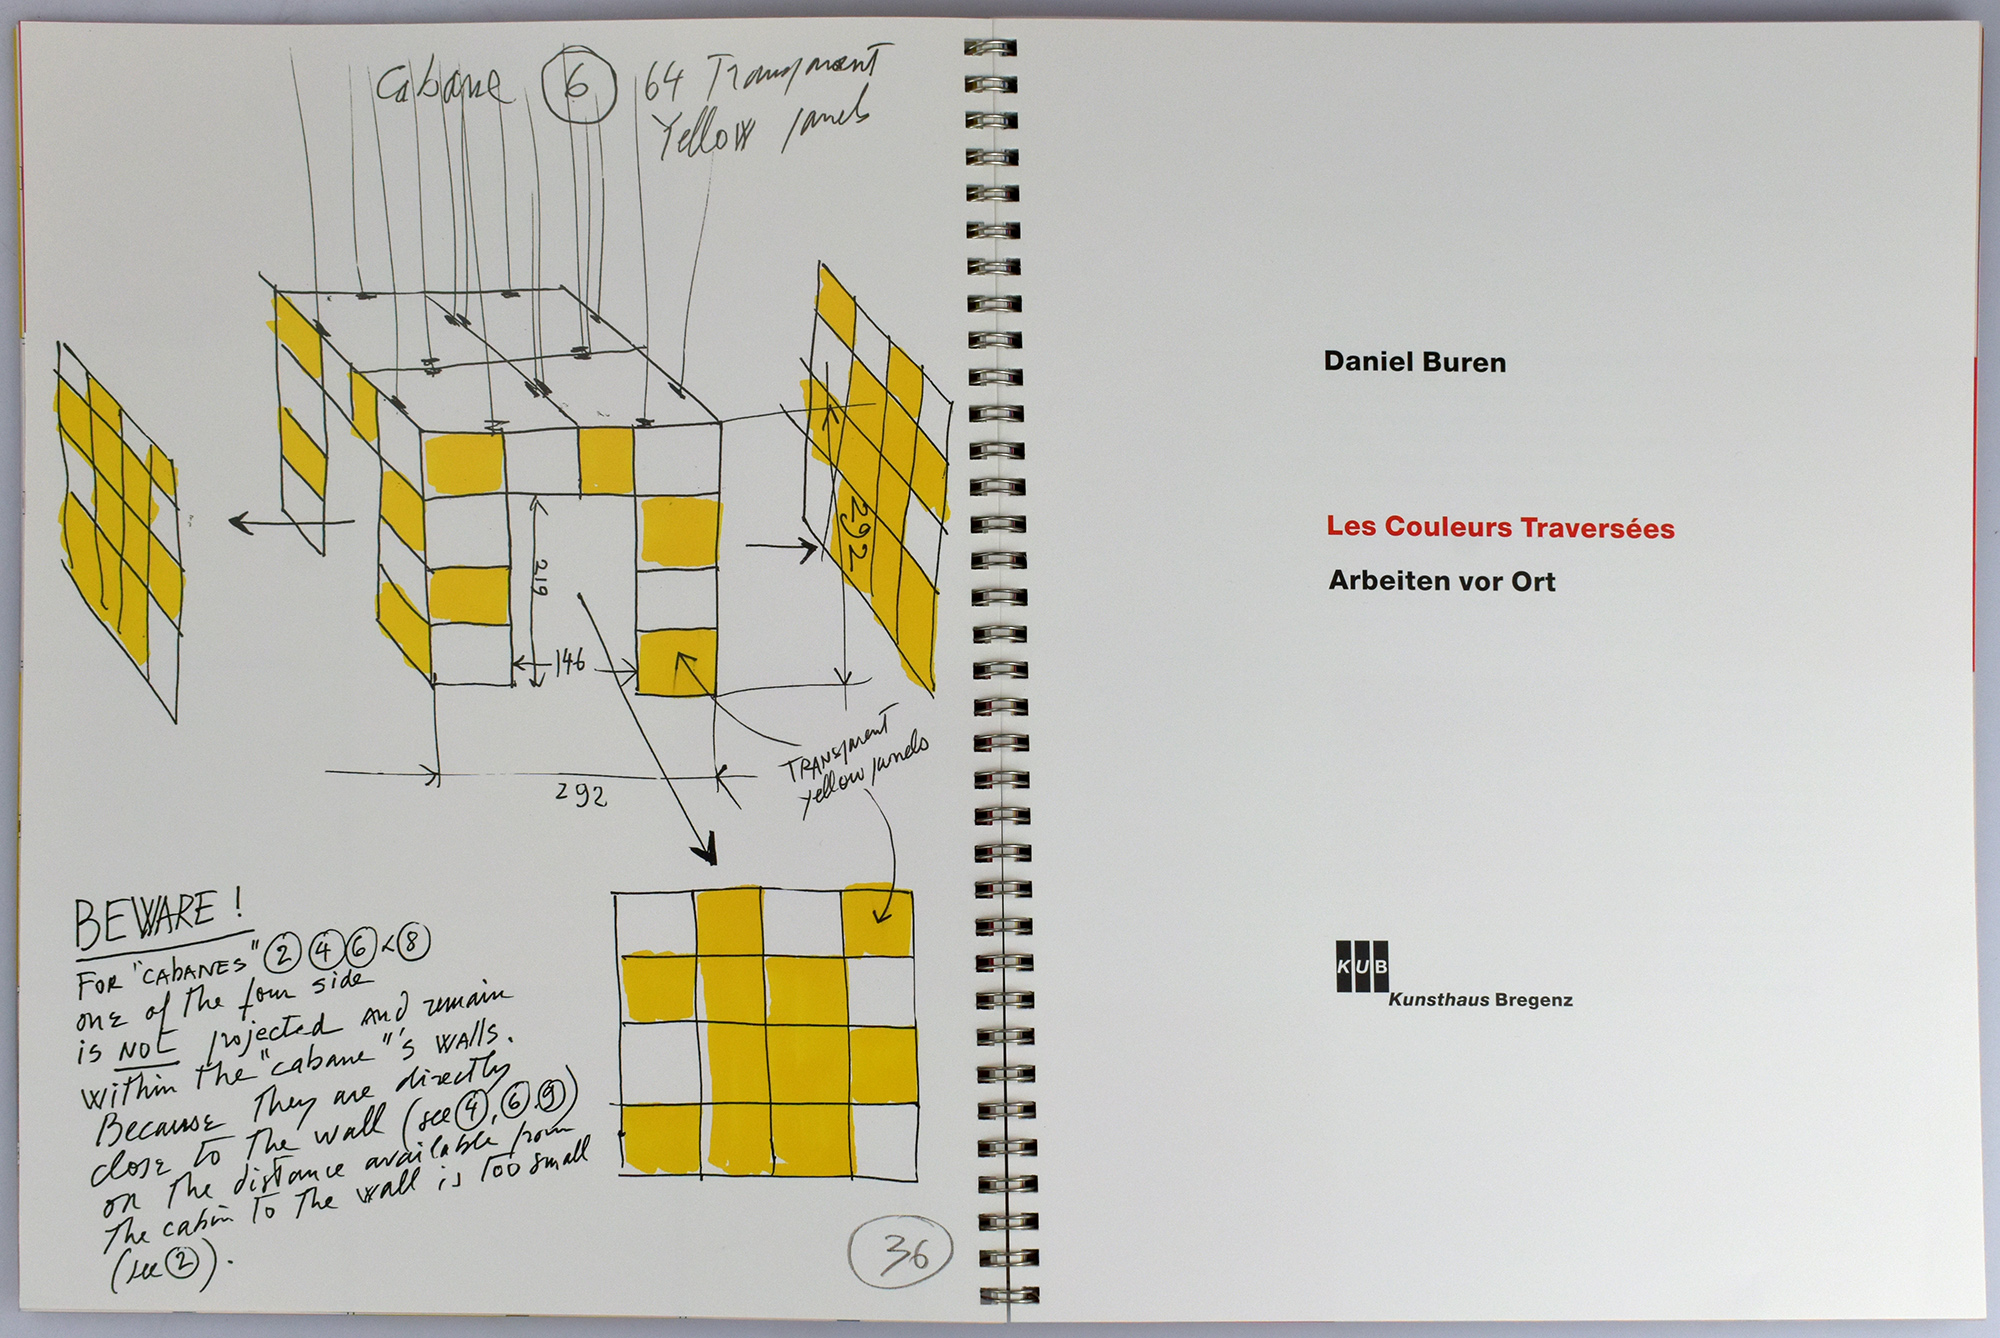 Cabane 6 64 Transparent
Yellow panels
219
146
292
292
TRANSparent
Yellow panels
BEWARE !
FOR "CABANES" 2 4 6 & 8
one of the four side
is NOT projected and remain
within the "cabane"'s WALLS.
Because They are directly
close to the wall (see 4, 6, 9)
or the distance available from
The cabin to the wall is too small
(see 2).
36
Daniel Buren
Les Couleurs Traversées
Arbeiten vor Ort
KUB
Kunsthaus Bregenz